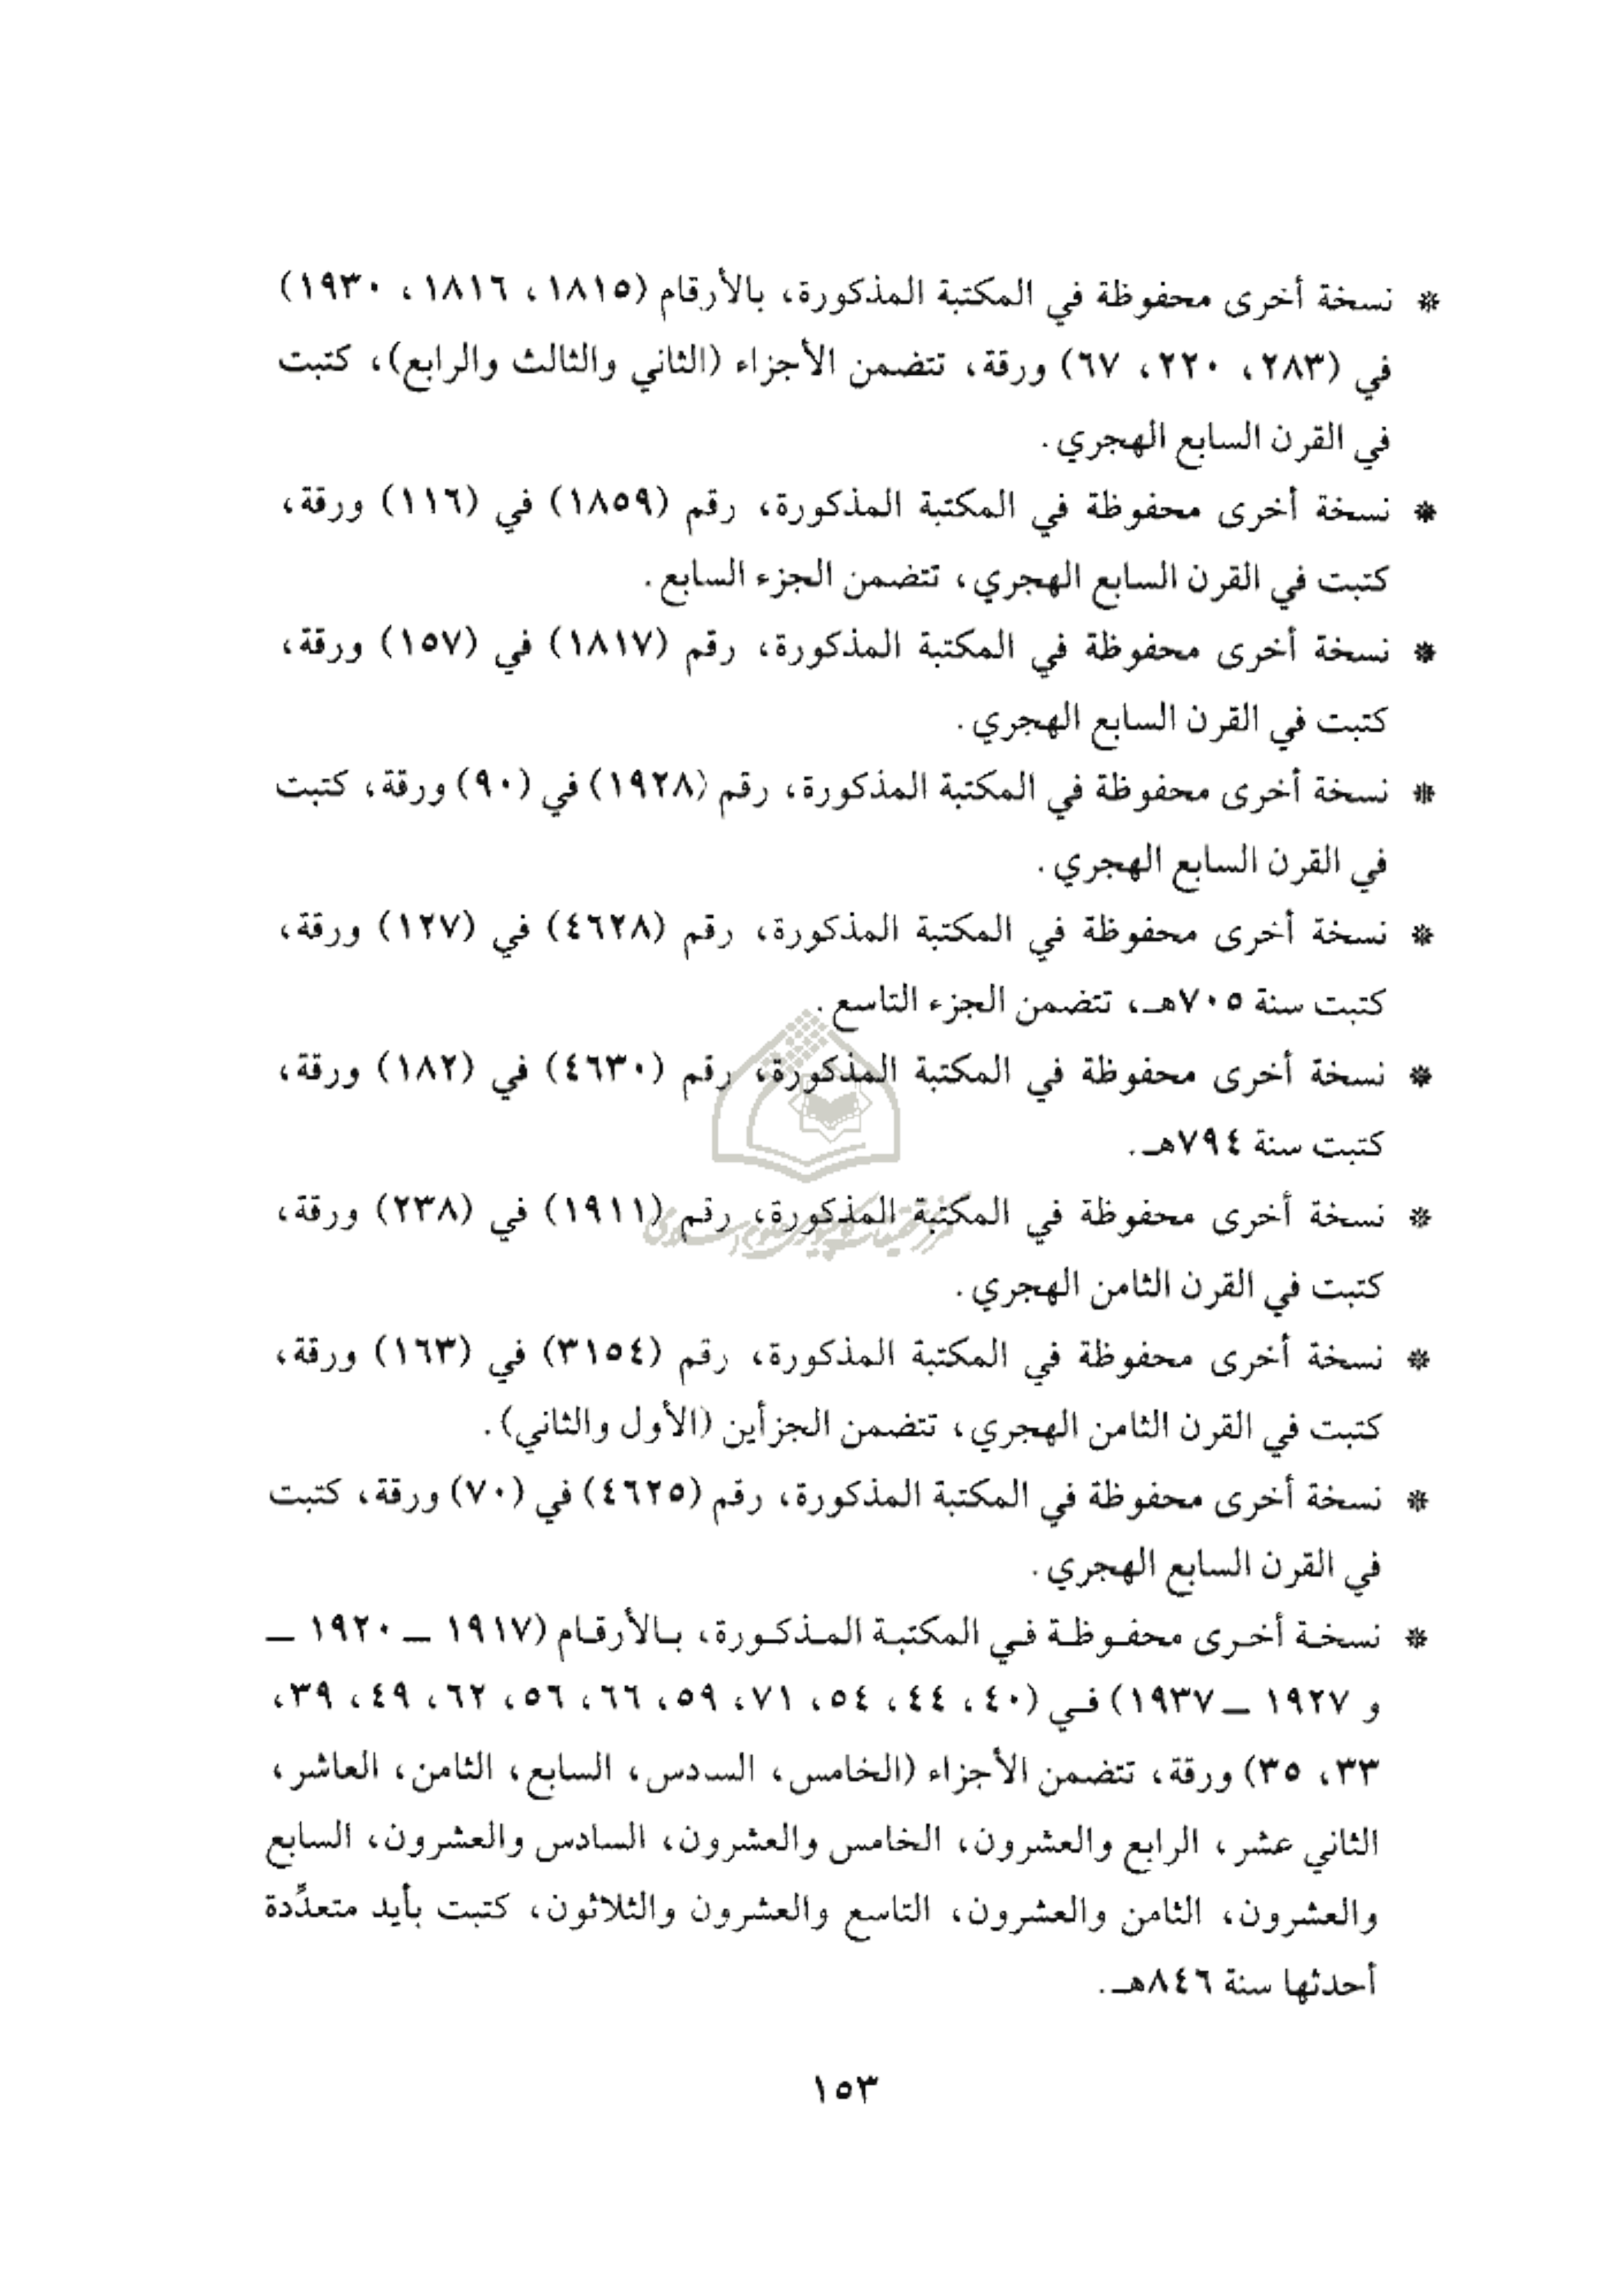 * نسخة أخرى محفوظة في المكتبة المذكورة، بالأرقام (١٨١٥، ١٨١٦، ١٩٣٠)
في (٢٨٣، ٢٢٠، ٦٧) ورقة، تتضمن الأجزاء (الثاني والثالث والرابع)، كتبت
في القرن السابع الهجري.
* نسخة أخرى محفوظة في المكتبة المذكورة، رقم (١٨٥٩) في (١١٦) ورقة،
كتبت في القرن السابع الهجري، تتضمن الجزء السابع.
* نسخة أخرى محفوظة في المكتبة المذكورة، رقم (١٨١٧) في (١٥٧) ورقة،
كتبت في القرن السابع الهجري.
* نسخة أخرى محفوظة في المكتبة المذكورة، رقم (١٩٢٨) في (٩٠) ورقة، كتبت
في القرن السابع الهجري.
* نسخة أخرى محفوظة في المكتبة المذكورة، رقم (٤٦٢٨) في (١٢٧) ورقة،
كتبت سنة ٧٠٥هـ، تتضمن الجزء التاسع.
* نسخة أخرى محفوظة في المكتبة المذكورة، رقم (٤٦٣٠) في (١٨٢) ورقة،
كتبت سنة ٧٩٤هـ.
* نسخة أخرى محفوظة في المكتبة المذكورة، رقم (١٩١١) في (٢٣٨) ورقة،
كتبت في القرن الثامن الهجري.
* نسخة أخرى محفوظة في المكتبة المذكورة، رقم (٣١٥٤) في (١٦٣) ورقة،
كتبت في القرن الثامن الهجري، تتضمن الجزأين (الأول والثاني).
* نسخة أخرى محفوظة في المكتبة المذكورة، رقم (٤٦٢٥) في (٧٠) ورقة، كتبت
في القرن السابع الهجري.
* نسخة أخرى محفوظة في المكتبة المذكورة، بالأرقام (١٩١٧ ــ ١٩٢٠ ــ
و ١٩٢٧ ــ ١٩٣٧) في (٤٠، ٤٤، ٥٤، ٧١، ٥٩، ٦٦، ٥٦، ٦٢، ٤٩، ٣٩،
٣٣، ٣٥) ورقة، تتضمن الأجزاء (الخامس، السدس، السابع، الثامن، العاشر،
الثاني عشر، الرابع والعشرون، الخامس والعشرون، السادس والعشرون، السابع
والعشرون، الثامن والعشرون، التاسع والعشرون والثلاثون، كتبت بأيد متعدِّدة
أحدثها سنة ٨٤٦هـ.
١٥٣